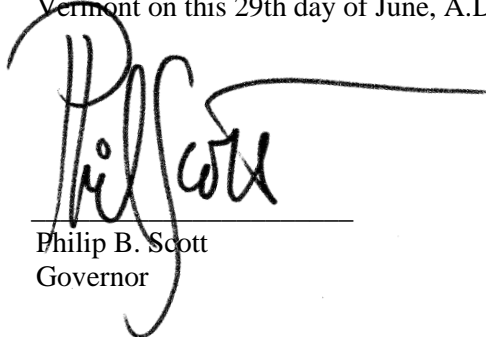 Vermont on this 29th day of June, A.D
Phil Scott
Philip B. Scott
Governor